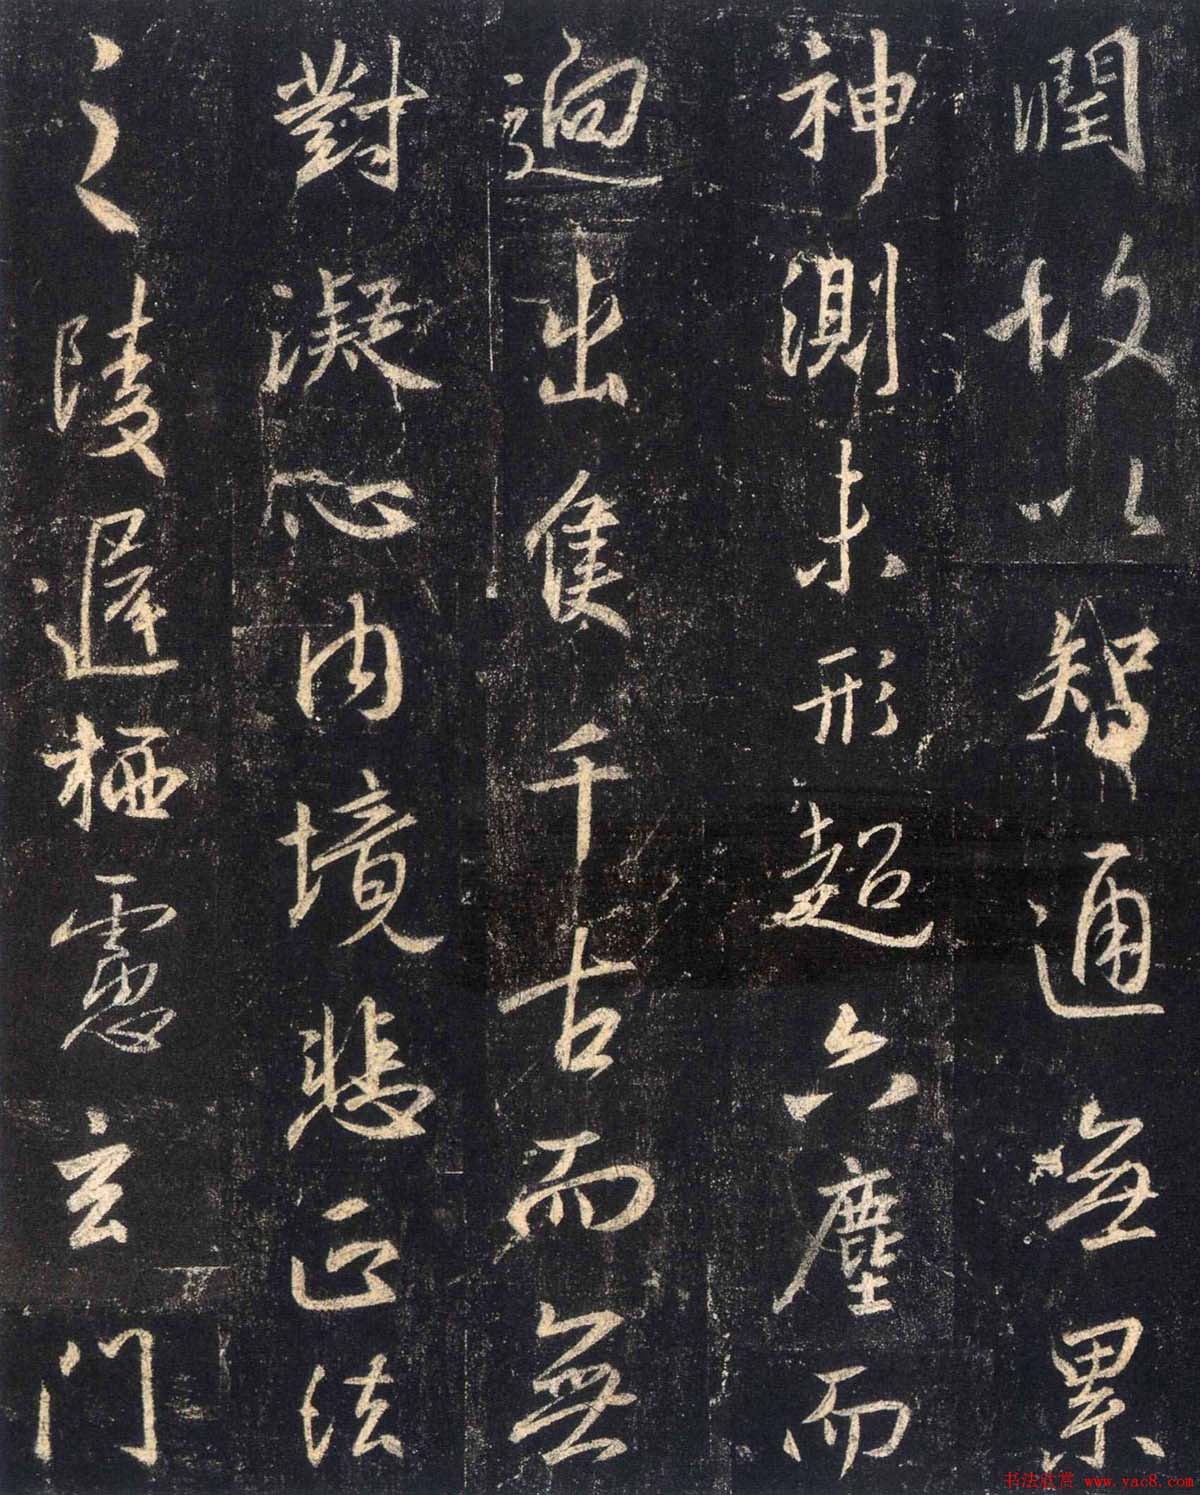 潤故以智通無累
神測未形超六塵而
迥出隻千古而無
對凝心內境悲正法
之陵遲栖慮玄門
书法欣赏 www.yac8.com